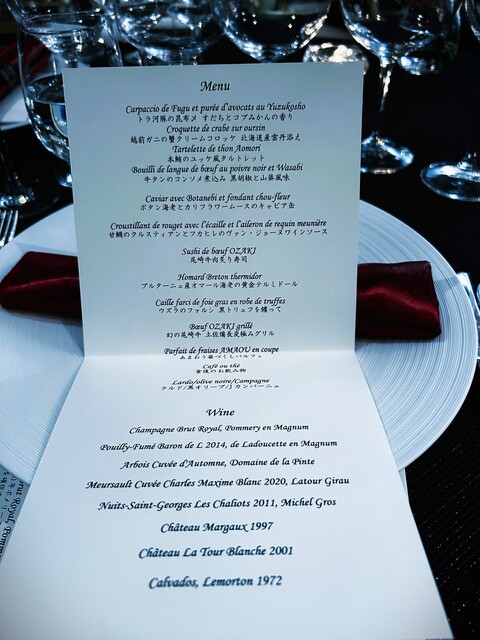 Menu
Carpaccio de Fugu et purée d'avocats au Yuzukosho
トラ河豚の昆布〆 すだちとコブみかんの香り
Croquette de crabe sur oursin
越前ガニの蟹クリームコロッケ 北海道産雲丹添え
Tartelette de thon Aomori
本鮪のユッケ風タルトレット
Bouilli de langue de bœuf au poivre noir et Wasabi
牛タンのコンソメ煮込み 黒胡椒と山葵風味
Caviar avec Botanebi et fondant chou-fleur
ボタン海老とカリフラワームースのキャビア缶
Croustillant de rouget avec l'écaille et l'aileron de requin meunière
甘鯛のクルスティアンとフカヒレのヴァン・ジョーヌワインソース
Sushi de bœuf OZAKI
尾崎牛肉炙り寿司
Homard Breton thermidor
ブルターニュ産オマール海老の黄金テルミドール
Caille farci de foie gras en robe de truffes
ウズラのファルシ 黒トリュフを纏って
Bœuf OZAKI grillé
幻の尾崎牛 土佐備長炭極みグリル
Parfait de fraises AMAOU en coupe
あまおう苺づくしパルフェ
Café ou thé
食後のお飲み物
Lardo/olive noire/Campagne
ラルド/黒オリーブ/カンパーニュ
Wine
Champagne Brut Royal, Pommery en Magnum
Pouilly-Fumé Baron de L 2014, de Ladoucette en Magnum
Arbois Cuvée d'Automne, Domaine de la Pinte
Meursault Cuvée Charles Maxime Blanc 2020, Latour Girau
Nuits-Saint-Georges Les Chaliots 2011, Michel Gros
Château Margaux 1997
Château La Tour Blanche 2001
Calvados, Lemorton 1972